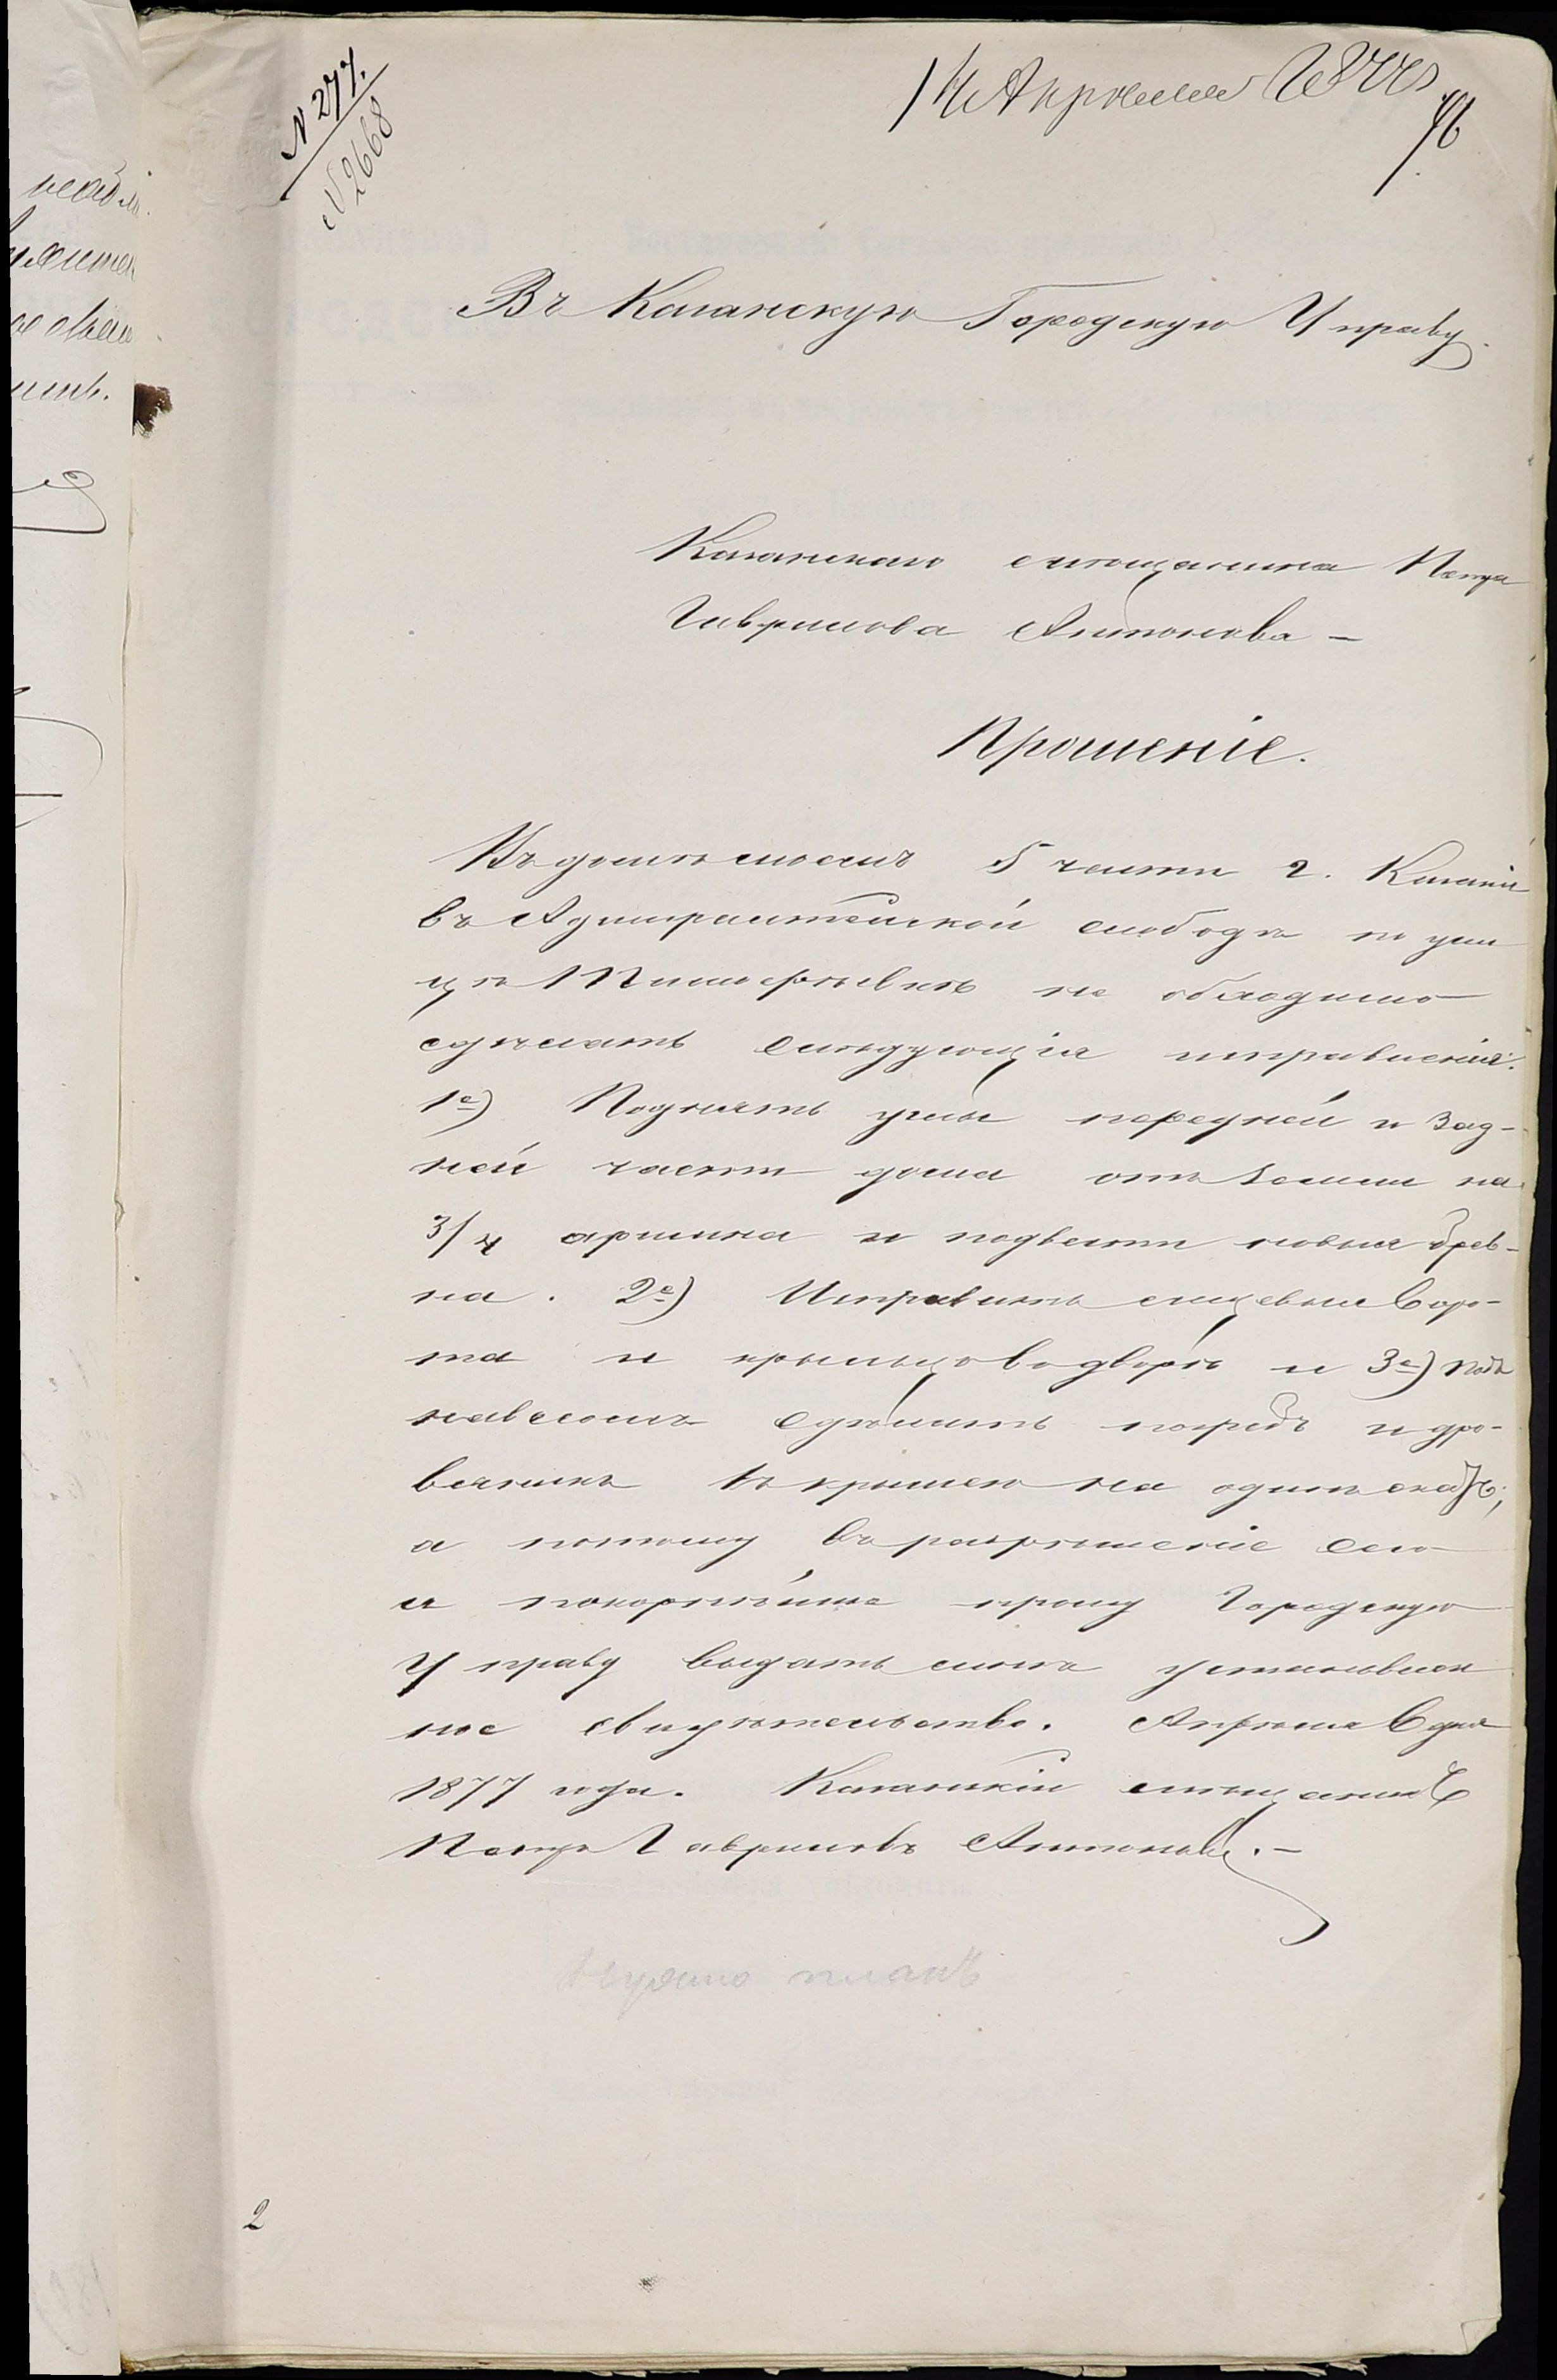 № 277.
№ 2668
14 Апрѣля 1877
96
Въ Казанскую Городскую Управу.
Казанскаго мѣщанина Петра
Гаврилова Антонова –
Прошеніе.
Въ домѣ моемъ 5 части г. Казани
въ Адмиралтейской слободѣ по ули
цѣ не обходимо
сдѣлать слѣдующія исправленія:
1е) Поднять углы передней и зад-
ней части дома отъ земли на
3/4 аршина и подвести новыя брев-
на. 2е) Исправить лицевыя воро-
та и крыльцо во дворѣ и 3е) подъ
навесомъ сдѣлать погребъ и дро-
веникъ крышею на одинъ скатъ;
а потому въ разрѣшеніе сего
я покорнѣйше прошу Городскую
Управу выдать мнѣ установлен
ное свидѣтельство. Апрѣля дня
1877 года. Казанскій мѣщанинъ
Петръ Гавриловъ Антоновъ. –
Нужно планъ
2